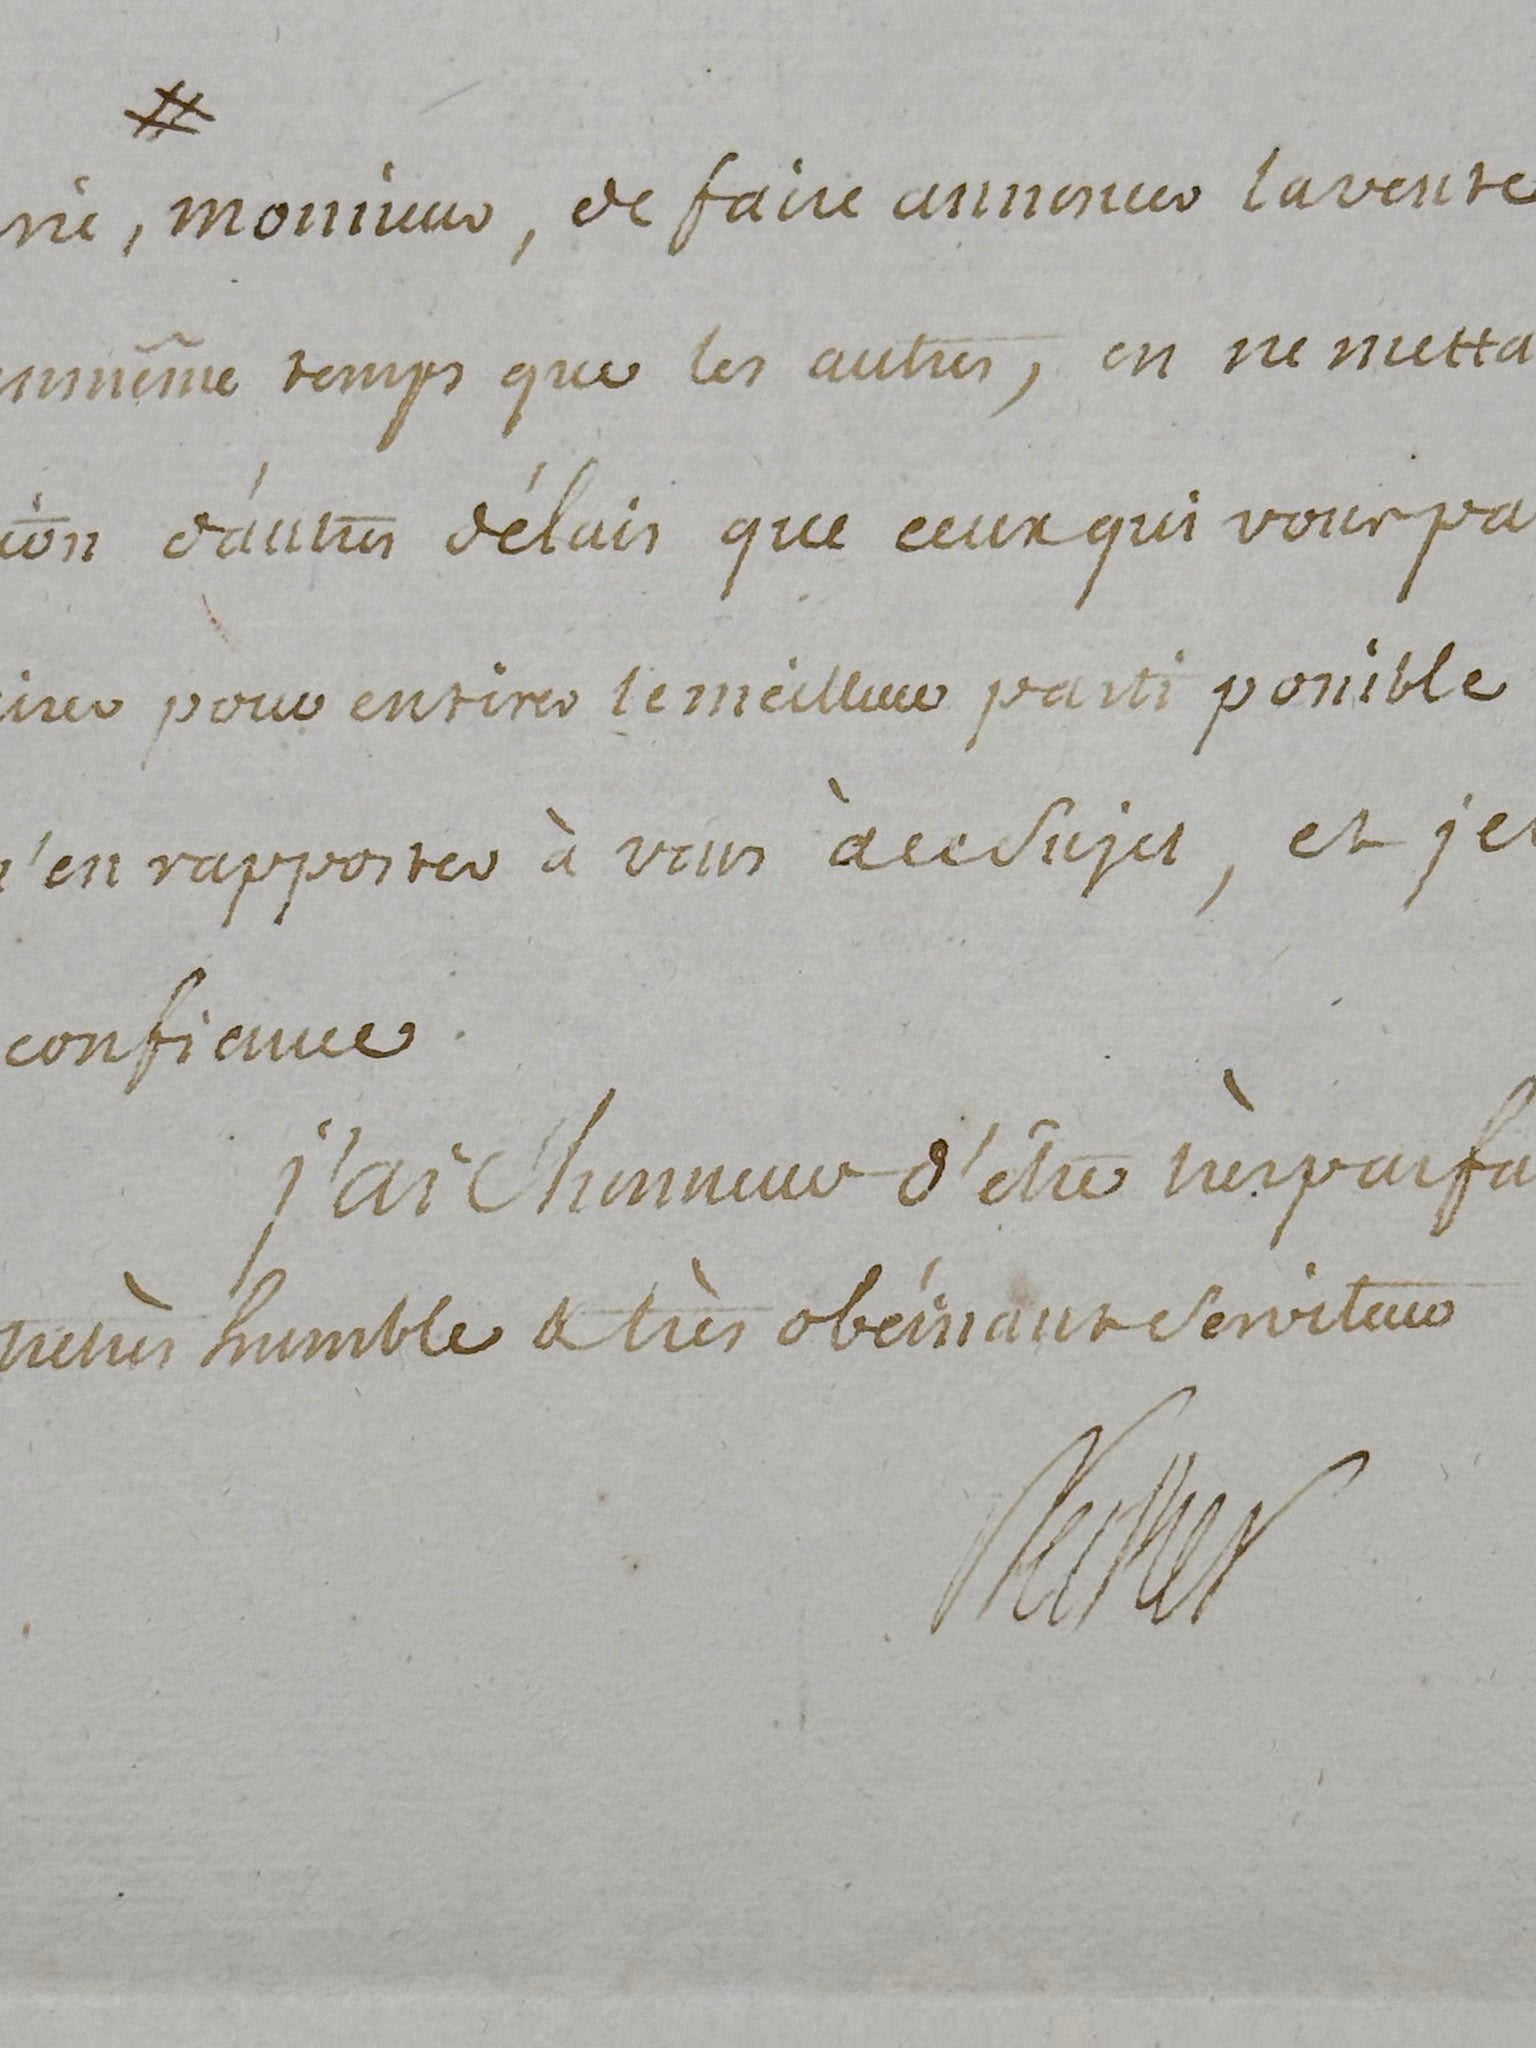 #
, monsieur, de faire annoncer la vente
en même temps que les autres, en ne metta
d'autres délais que ceux qui vous pa
pour en tirer le meilleur parti possible
m'en rapporter à vous à ce sujet, et je
confiance.
j'ai l'honneur d'être très parfa
très humble & très obéissant serviteur
Necker